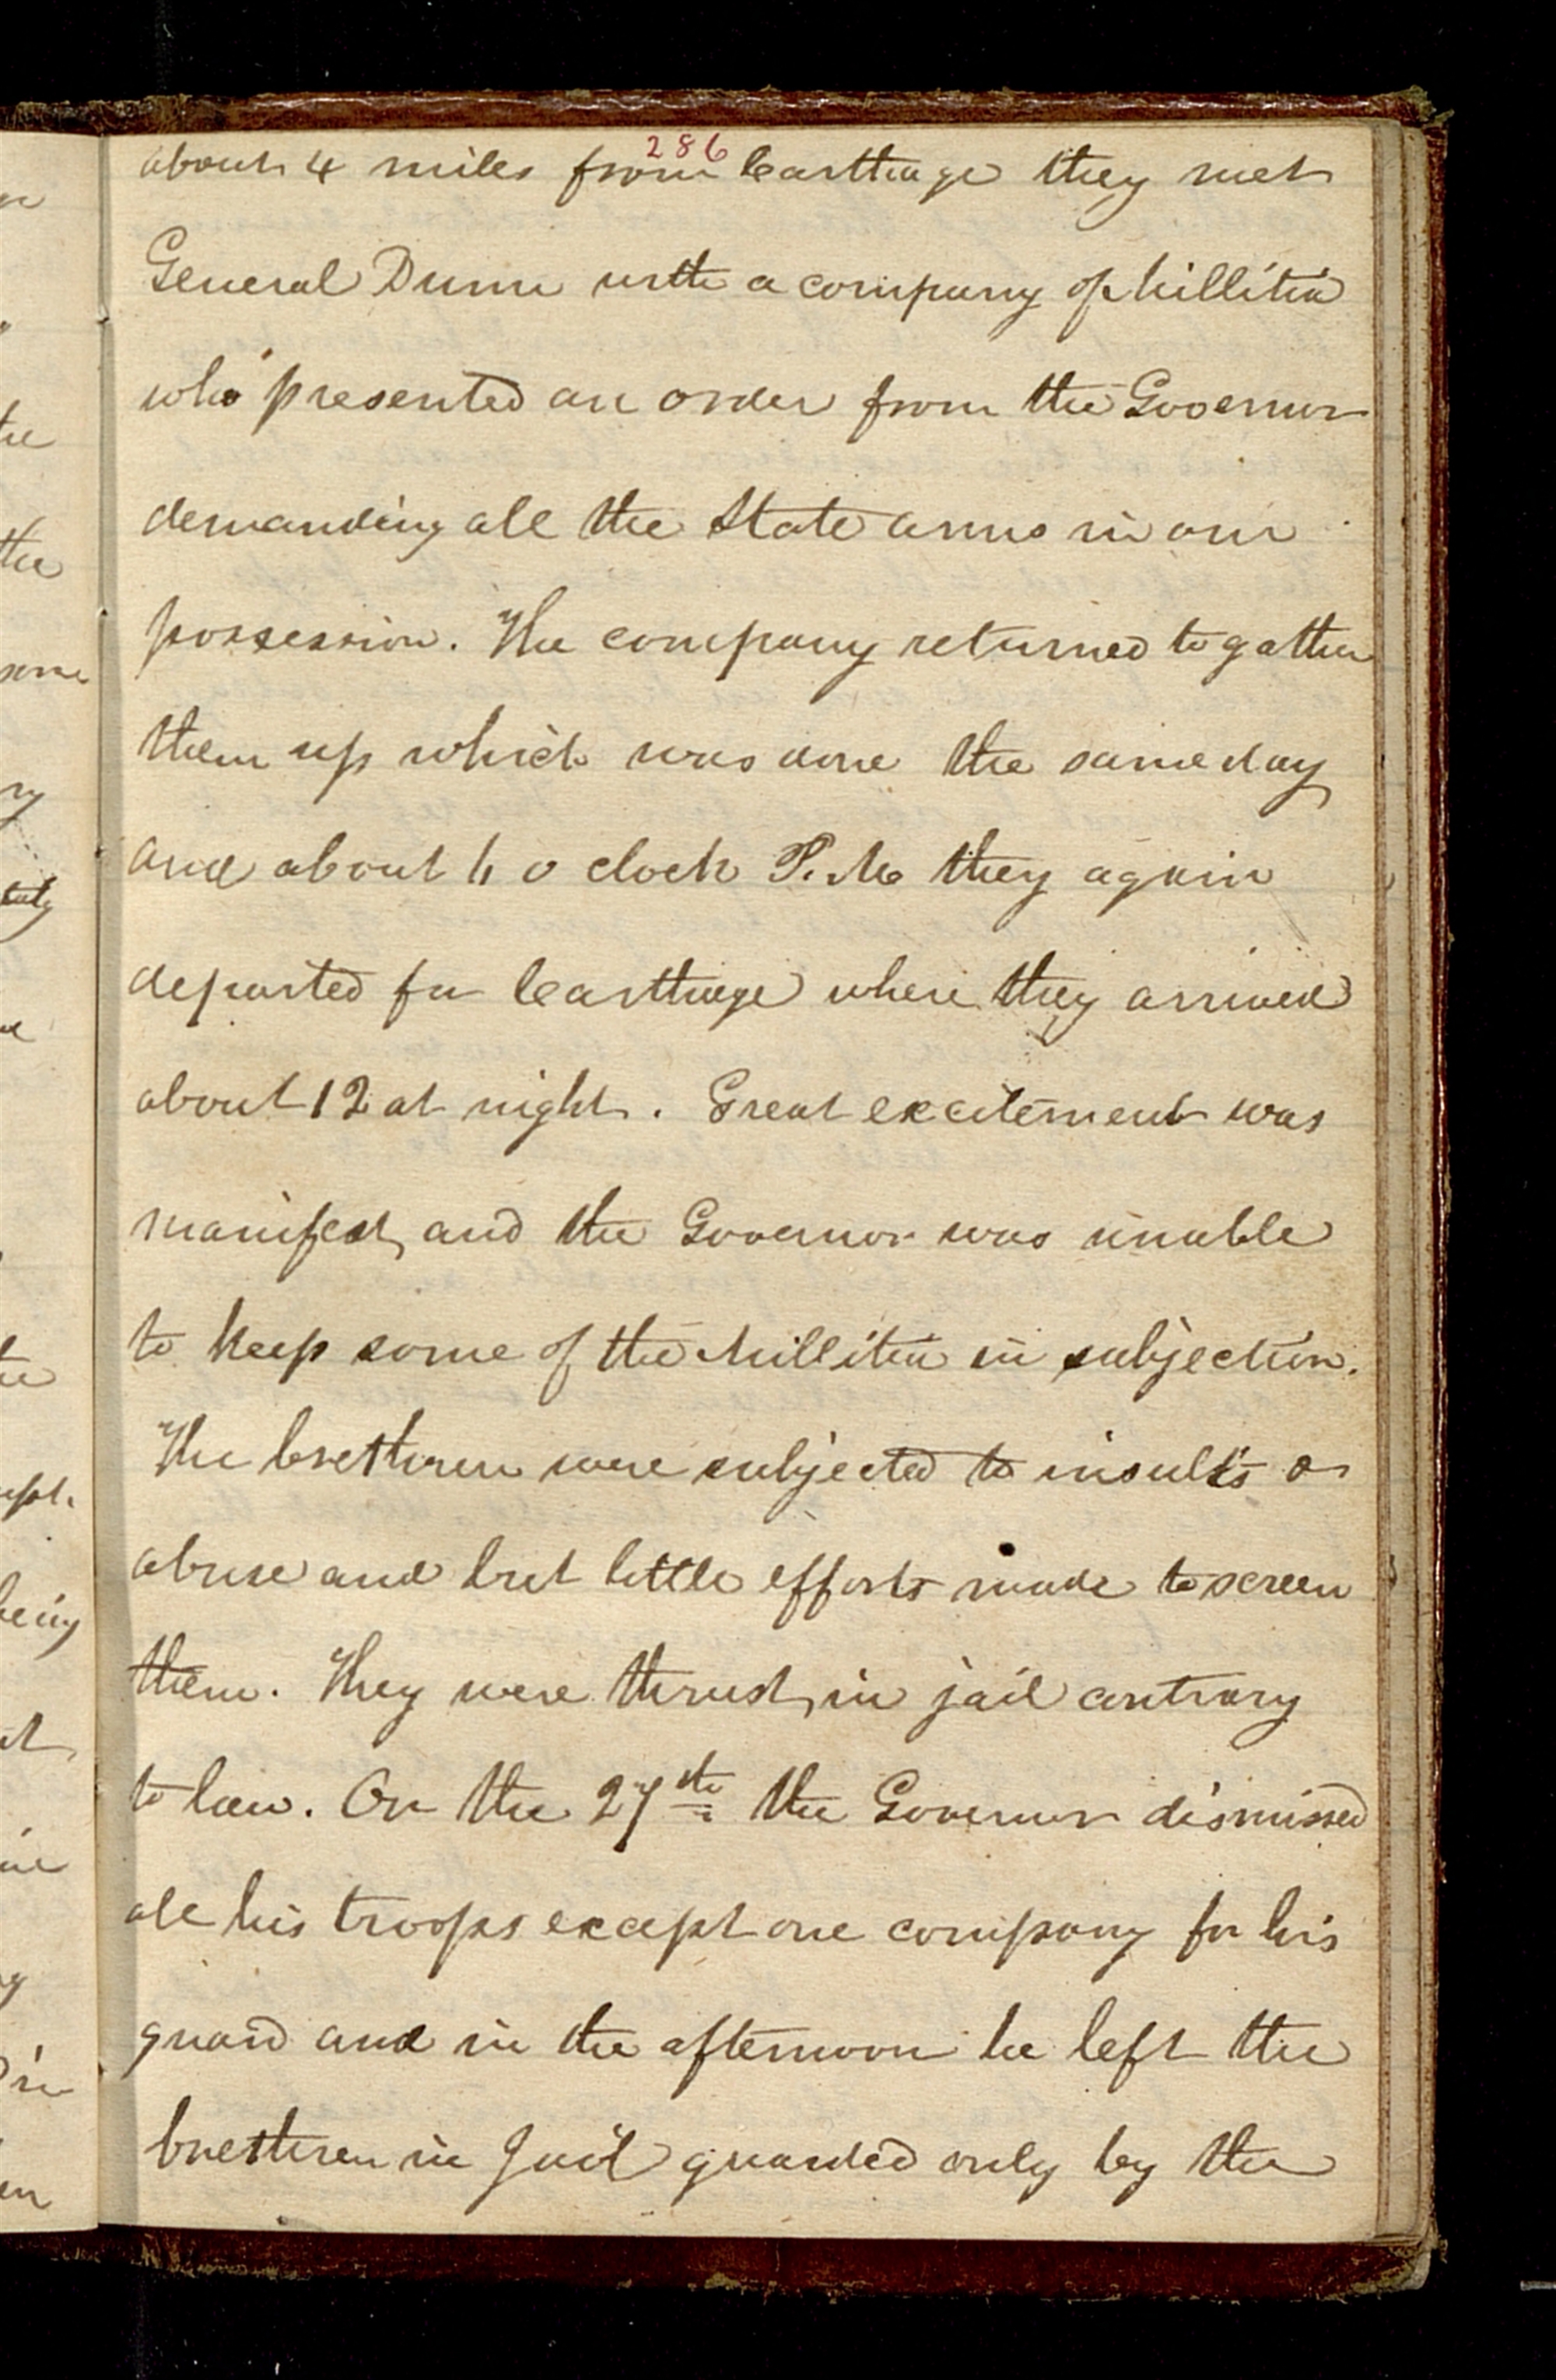 286
about 4 miles from Carthage they met
General Dunn with a company of Millitia
who presented an order from the Governor
demanding all the State arms in our
possession. The company returned to gather
them up which was done the same day
and about 6 o clock P. M they again
departed for Carthage where they arrived
about 12 at night. Great excitement was
manifest, and the Governor was unable
to keep some of the Millitia in subjection.
The brethren were subjected to insults &
abuse and but little efforts made to screen
them. They were thrust, in jail contrary
to law. On the 27th the Governor dismissed
all his troops except one company for his
guard and in the afternoon he left the
brethren in Jail guarded only by the